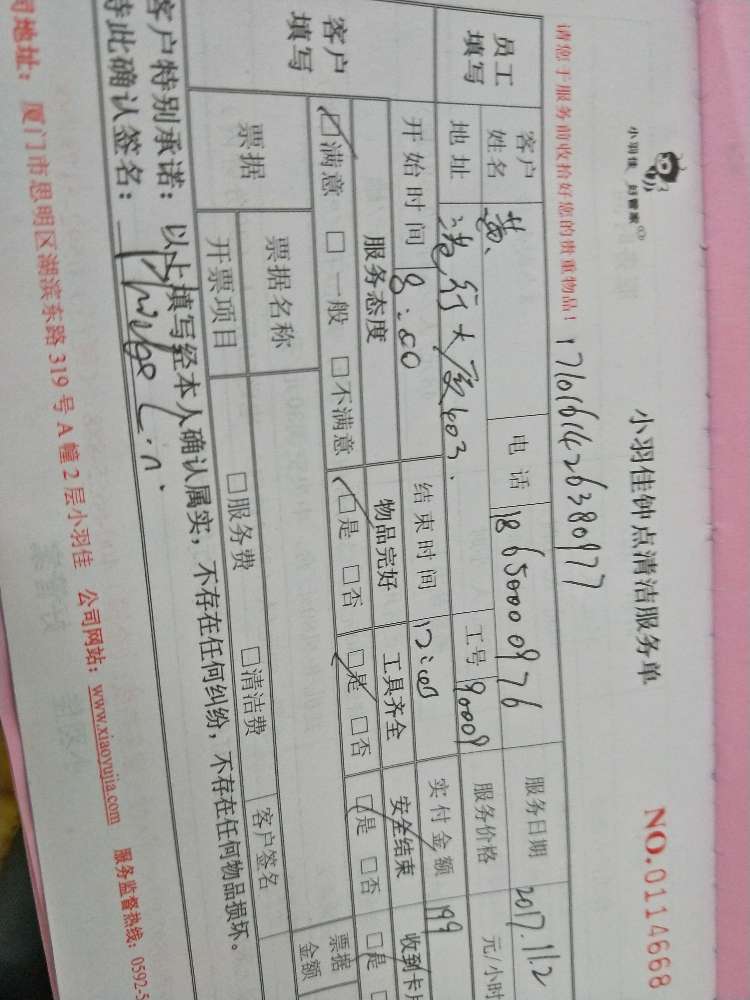 小羽佳 好管家
小羽佳钟点清洁服务单
NO.0114668
请您于服务前收拾好您的贵重物品！ 17101614263380977
员工填写 客户姓名 黄、 电话 18650000976 服务日期 2017.11.2
地址 港行大厦403、 工号 90009 服务价格 元/小时
开始时间 8:00 结束时间 12:00 实付金额 199
客户填写 服务态度 物品完好 工具齐全 安全结束 收到卡片
☑满意 □一般 □不满意 ☑是 □否 ☑是 □否 ☑是 □否 □是
票据 票据名称 票据金额
开票项目 □服务费 □清洁费 客户签名
客户特别承诺：以上填写经本人确认属实，不存在任何纠纷，不存在任何物品损坏。
特此确认签名：
司地址：厦门市思明区湖滨东路319号A幢2层小羽佳 公司网站：www.xiaoyujia.com 服务监督热线：0592-5